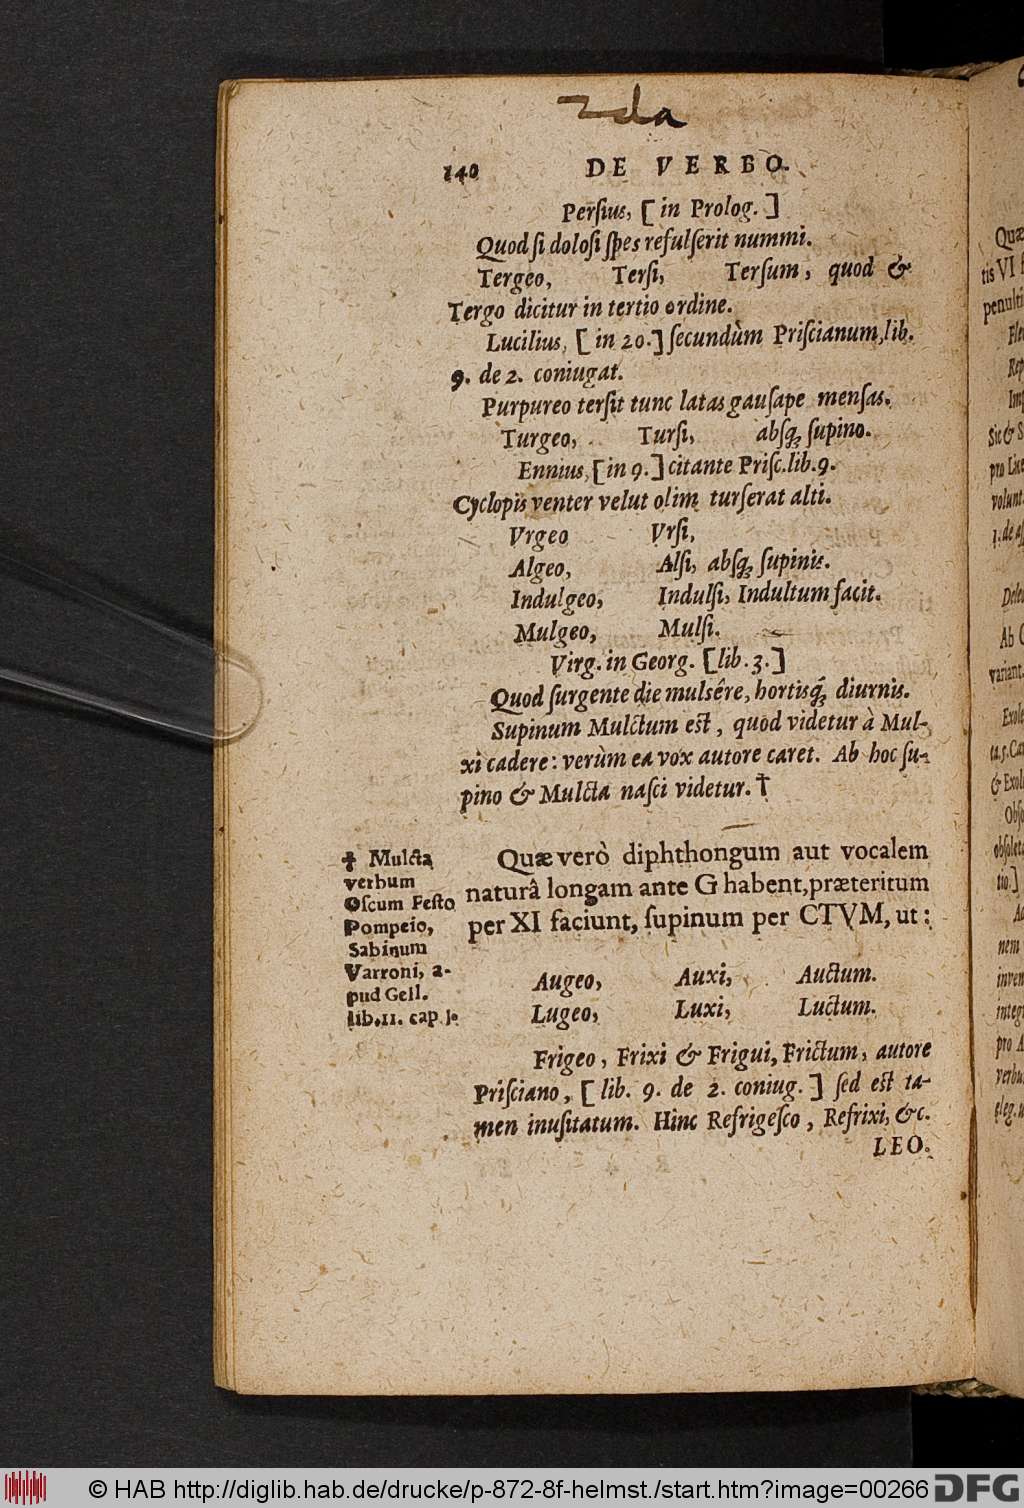 2da
140 DE VERBO.
Persius, [in Prolog.]
Quod si dolosi spes refulserit nummi.
Tergeo, Tersi, Tersum, quod &
Tergo dicitur in tertio ordine.
Lucilius, [in 20.] secundùm Priscianum, lib.
9. de 2. coniugat.
Purpureo tersit tunc latas gausape mensas.
Turgeo, Tursi, absq; supino.
Ennius, [in 9.] citante Prisc. lib. 9.
Cyclopis venter velut olim turserat alti.
Vrgeo Vrsi,
Algeo, Alsi, absq; supinis.
Indulgeo, Indulsi, Indultum facit.
Mulgeo, Mulsi.
Virg. in Georg. [lib. 3.]
Quod surgente die mulsêre, hortisq́; diurnis.
Supinum Mulctum est, quod videtur à Mul-
xi cadere: verùm ea vox autore caret. Ab hoc su-
pino & Mulcta nasci videtur. †
† Mulcta
verbum
Oscum Festo
Pompeio,
Sabinum
Varroni, a-
pud Gell.
lib. 11. cap. 1.
Quæ verò diphthongum aut vocalem
naturâ longam ante G habent, præteritum
per XI faciunt, supinum per CTVM, ut:
Augeo, Auxi, Auctum.
Lugeo, Luxi, Luctum.
Frigeo, Frixi & Frigui, Frictum, autore
Prisciano, [lib. 9. de 2. coniug.] sed est ta-
men inusitatum. Hinc Refrigesco, Refrixi, &c.
LEO.
Quæ
tis VI
penulti
Rep
Sic & S
pro Lice
volunt
1. de
Ab
variant.
Exole
& Exol
obsolet
tio.]
nem
inven
integr
pro A
verbu
eleg.
© HAB http://diglib.hab.de/drucke/p-872-8f-helmst./start.htm?image=00266
DFG